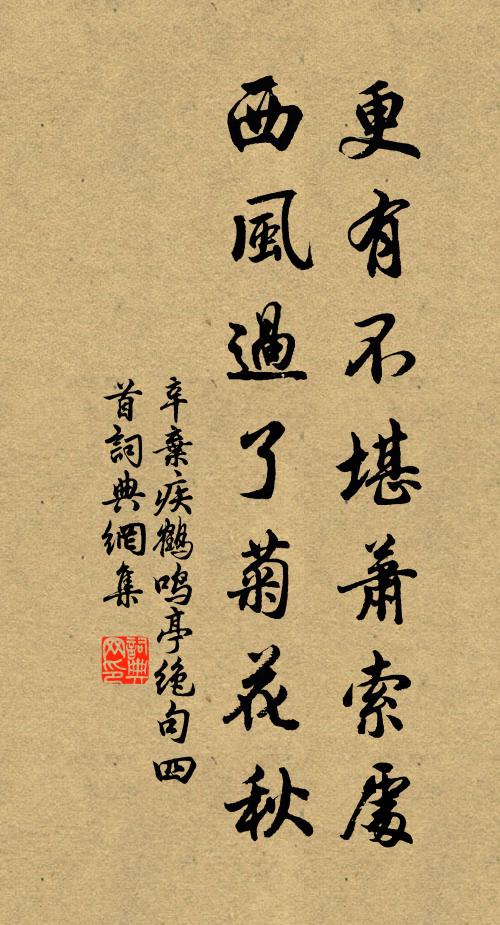 更有不堪蕭索處
西風過了菊花秋
辛棄疾鶴鳴亭絶句四
首詞典網集
詞典
网印